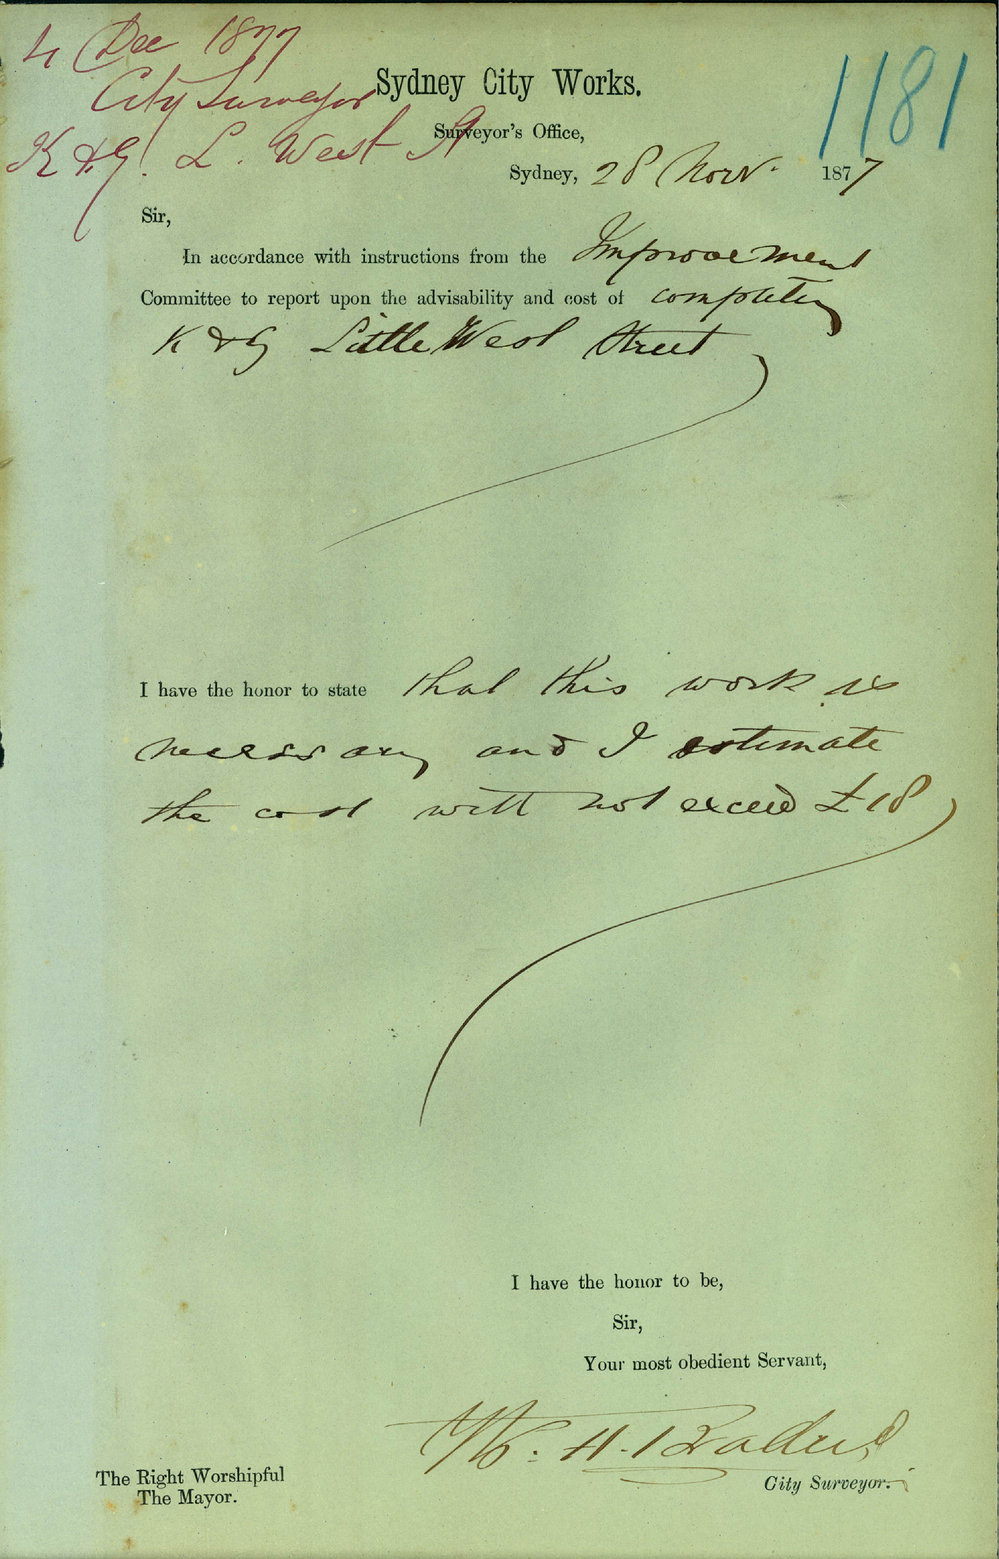 4 Dec 1877
City Surveyor
K & G. L. West St
1181
Sydney City Works.
Surveyor's Office,
Sydney, 28 Novr. 1877
Sir,
In accordance with instructions from the Improvement
Committee to report upon the advisability and cost of completing
K & G Little West Street
I have the honor to state that this work is
necessary and I estimate
the cost will not exceed £18
I have the honor to be,
Sir,
Your most obedient Servant,
City Surveyor.
The Right Worshipful
The Mayor.